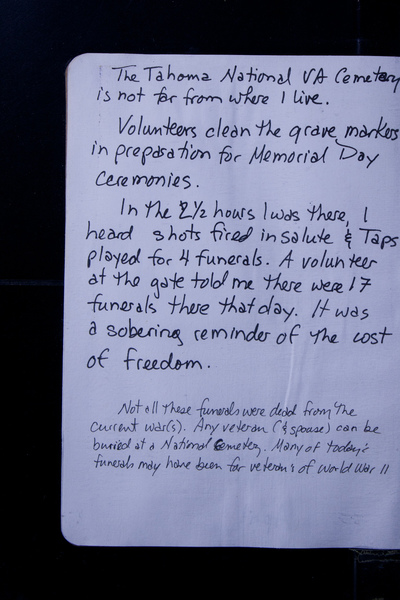 The Tahoma National VA Cemetary
is not far from where I live.
Volunteers clean the grave markers
in preparation for Memorial Day
ceremonies.
In the 2 1/2 hours I was there, I
heard shots fired in salute & Taps
played for 4 funerals. A volunteer
at the gate told me there were 17
funerals there that day. It was
a sobering reminder of the cost
of freedom.
Not all these funerals were dead from the
current war(s). Any veteran (& spouse) can be
buried at a National Cemetery. Many of today's
funerals may have been for veteran's of World War II